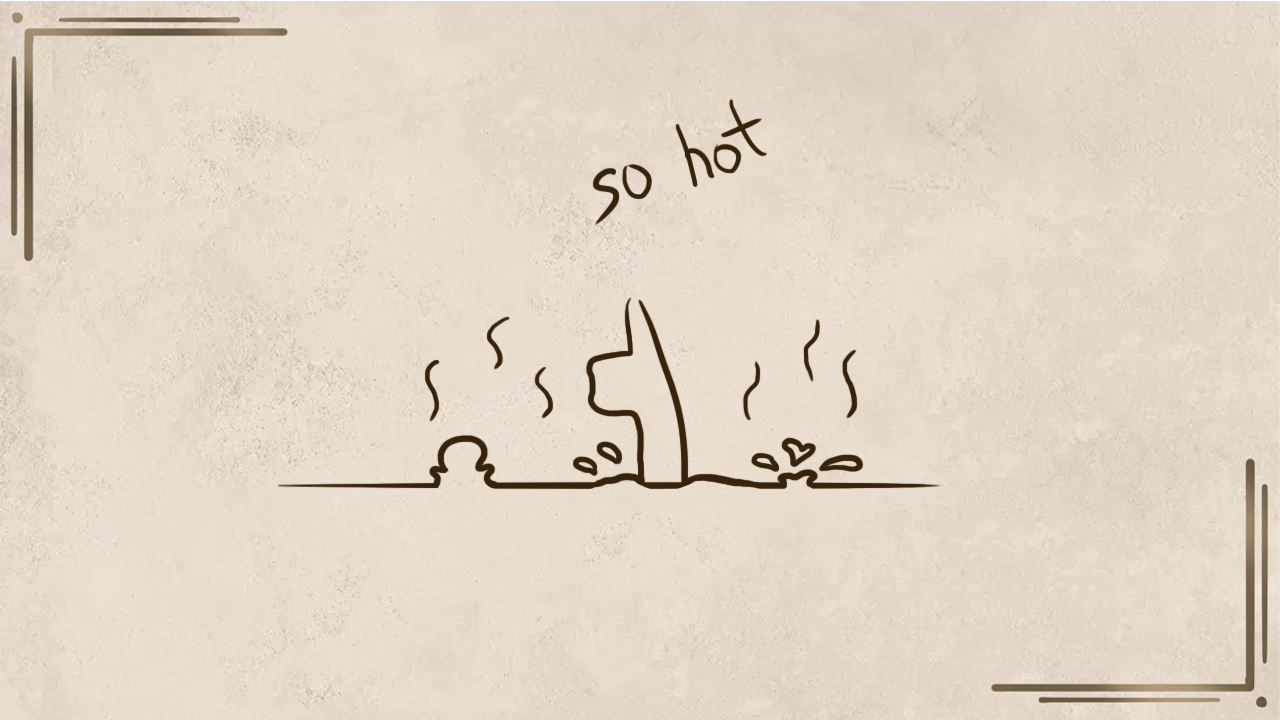 so hot